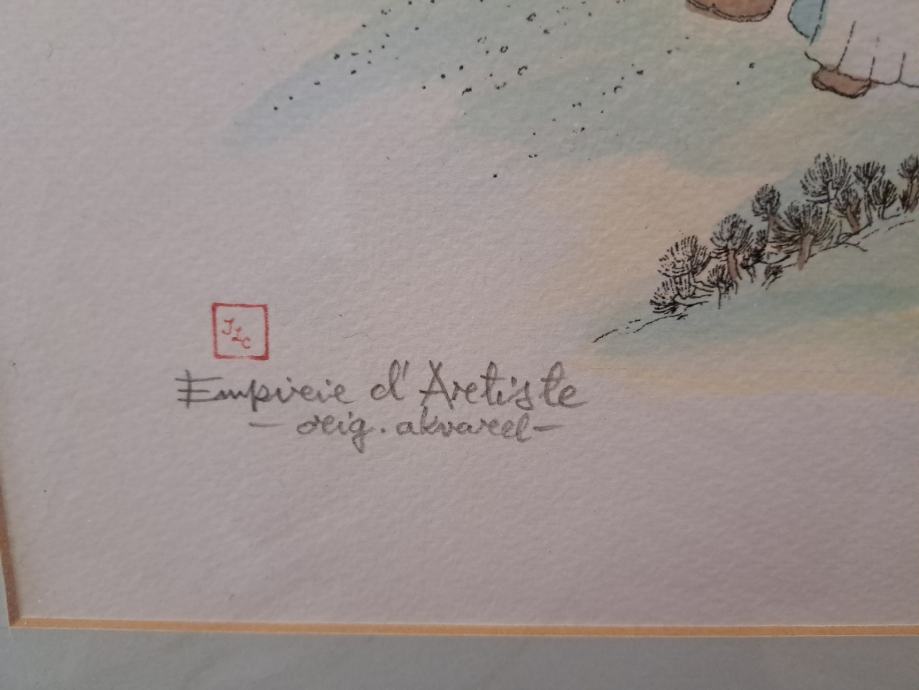 JLC
Empirie d'Artiste
– orig. akvarel –